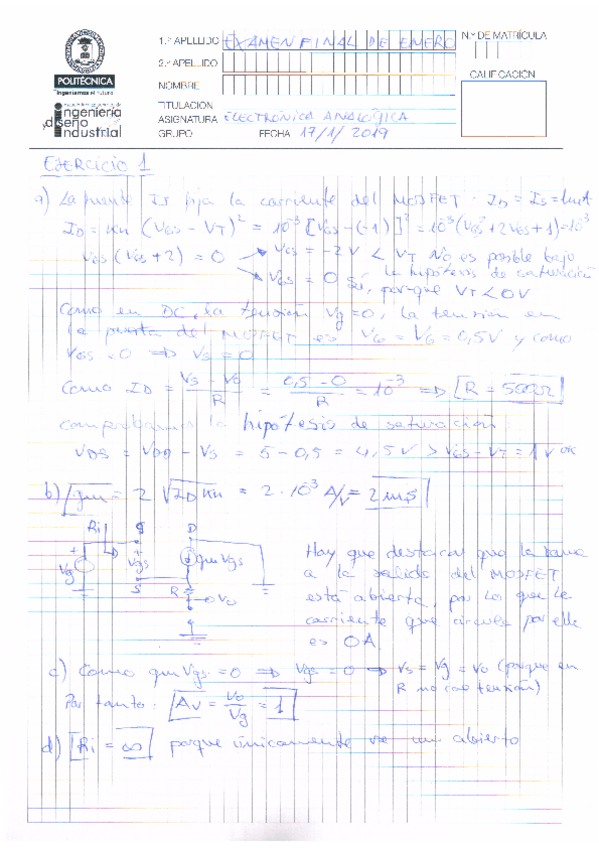 1.er APELLIDO EXAMEN FINAL DE ENERO
N.º DE MATRÍCULA
2.º APELLIDO
CALIFICACIÓN
NOMBRE
POLITÉCNICA
TITULACIÓN
ingeniería
y diseño
industrial
ASIGNATURA ELECTRÓNICA ANALÓGICA
GRUPO FECHA 17/1/2019
EJERCICIO 1
a) La fuente Is fija la corriente del MOSFET. ID = IS = 1mA
ID = kn (VGS - VT)² = 10⁻³ [VGS - (-1)]² = 10⁻³ (VGS² + 2VGS + 1) = 10⁻³
VGS (VGS + 2) = 0 VGS = -2V < VT No es posible bajo
la hipótesis de saturación
VGS = 0 Sí, porque VT < 0V
Como en DC, la tensión Vg = 0, la tensión en
la puerta del MOSFET es VG = 0,5V y como
VGS = 0 ⇒ VS = 0
Como ID = VS - VO / R = 0,5 - 0 / R = 10⁻³ ⇒ R = 500Ω
comprobamos la hipótesis de saturación:
VDS = VDD - VS = 5 - 0,5 = 4,5V > VGS - VT = 1V OK
b) gm = 2 √ID kn = 2 · 10⁻³ A/V = 2mS
Ri G D
Vg + Vgs - gm Vgs
S R
Vo
Hay que destacar que la rama
a la salida del MOSFET
está abierta, por lo que la
corriente que circula por ella
es 0A.
c) Como gm Vgs = 0 ⇒ Vgs = 0 ⇒ Vs = Vg = Vo (porque en
R no cae tensión)
Por tanto: Av = Vo / Vg = 1
d) Ri = ∞ porque únicamente ve un abierto